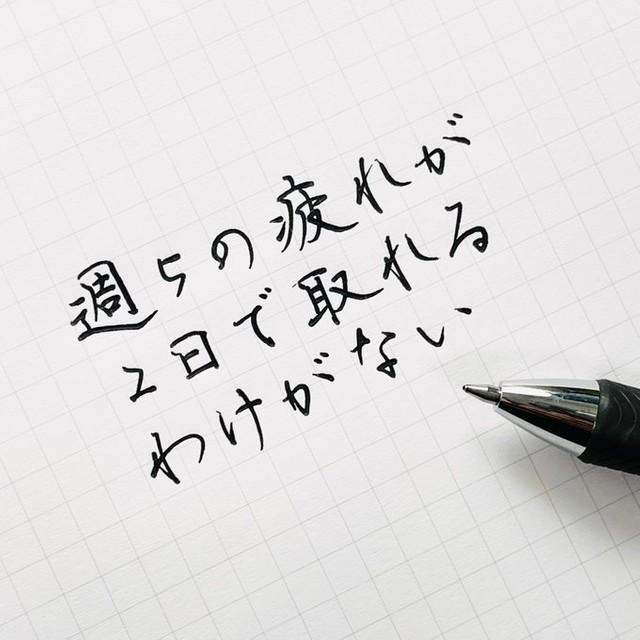 週5の疲れが
2日で取れる
わけがない